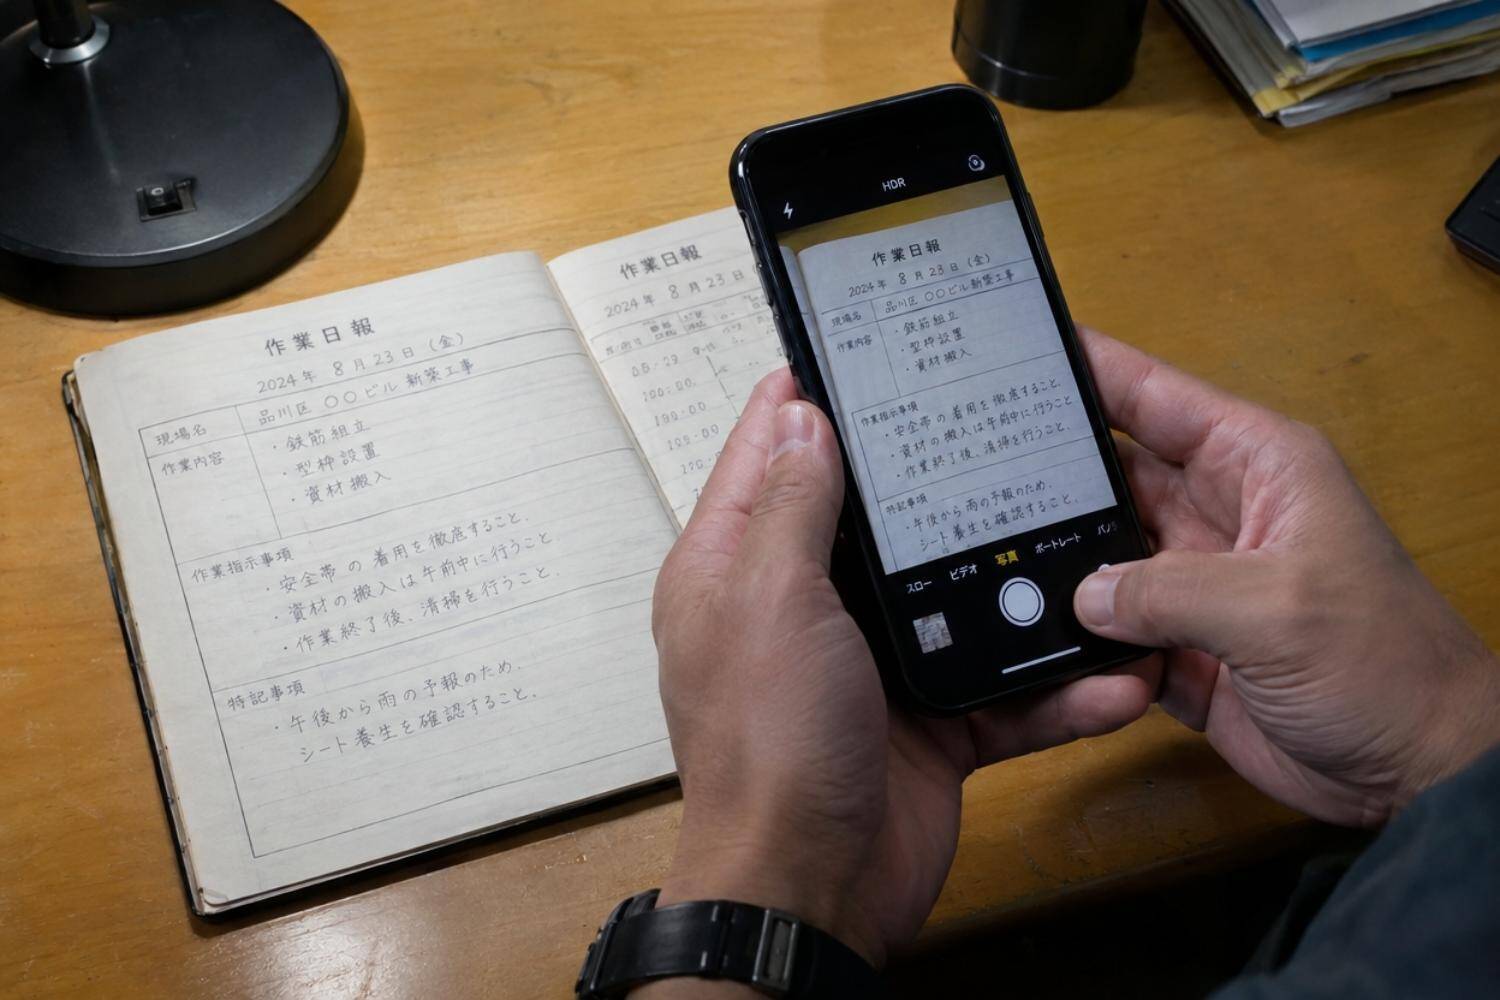 作業日報
2024年 8月23日 (金)
現場名 品川区 〇〇ビル 新築工事
作業内容 ・鉄筋組立
・型枠設置
・資材搬入
作業指示事項
・安全帯の着用を徹底すること.
・資材の搬入は午前中に行うこと
・作業終了後、清掃を行うこと.
特記事項
・午後から雨の予報のため.
シート養生を確認すること.
作業日報
2024年 8月23日
HDR
作業日報
2024年 8月23日 (金)
現場名 品川区 〇〇ビル新築工事
作業内容 ・鉄筋組立
・型枠設置
・資材搬入
作業指示事項
・安全帯の着用を徹底すること.
・資材の搬入は午前中に行うこと
・作業終了後、清掃を行うこと.
特記事項
・午後から雨の予報のため.
シート養生を確認すること.
スロー ビデオ 写真 ポートレート